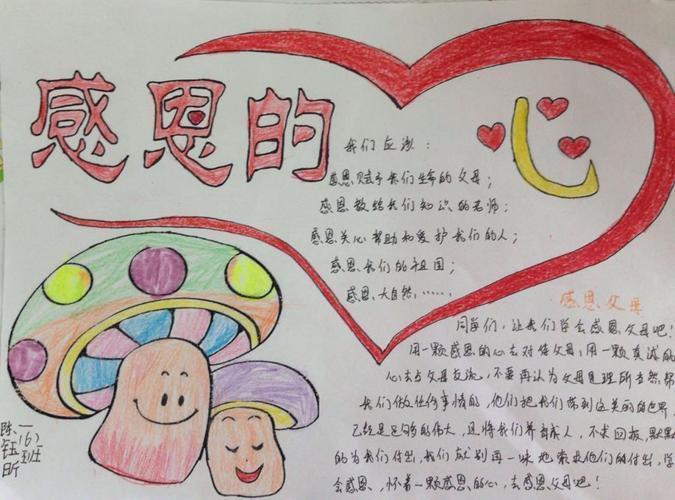 感恩的心
我们应该：
感恩赋予我们生命的父母；
感恩教给我们知识的老师；
感恩关心帮助和爱护我们的人；
感恩我们的祖国；
感恩大自然……
感恩父母
同学们，让我们学会感恩父母吧！
用一颗感恩的心去对待父母，用一颗真诚的
心去与父母交流，不要再认为父母是理所当然帮
我们做任何事情的，他们把我们带到这美丽的世界
已经是足够的伟大，且将我们养育成人，不求回报，默默
的为我们付出，我们就别再一味地索求他们的付出，学
会感恩，怀着一颗感恩的心，去感恩父母吧！
陈钰昕
一(6)班